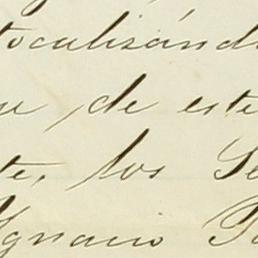 tocalizánd
de este
te, los Se
Ignacio